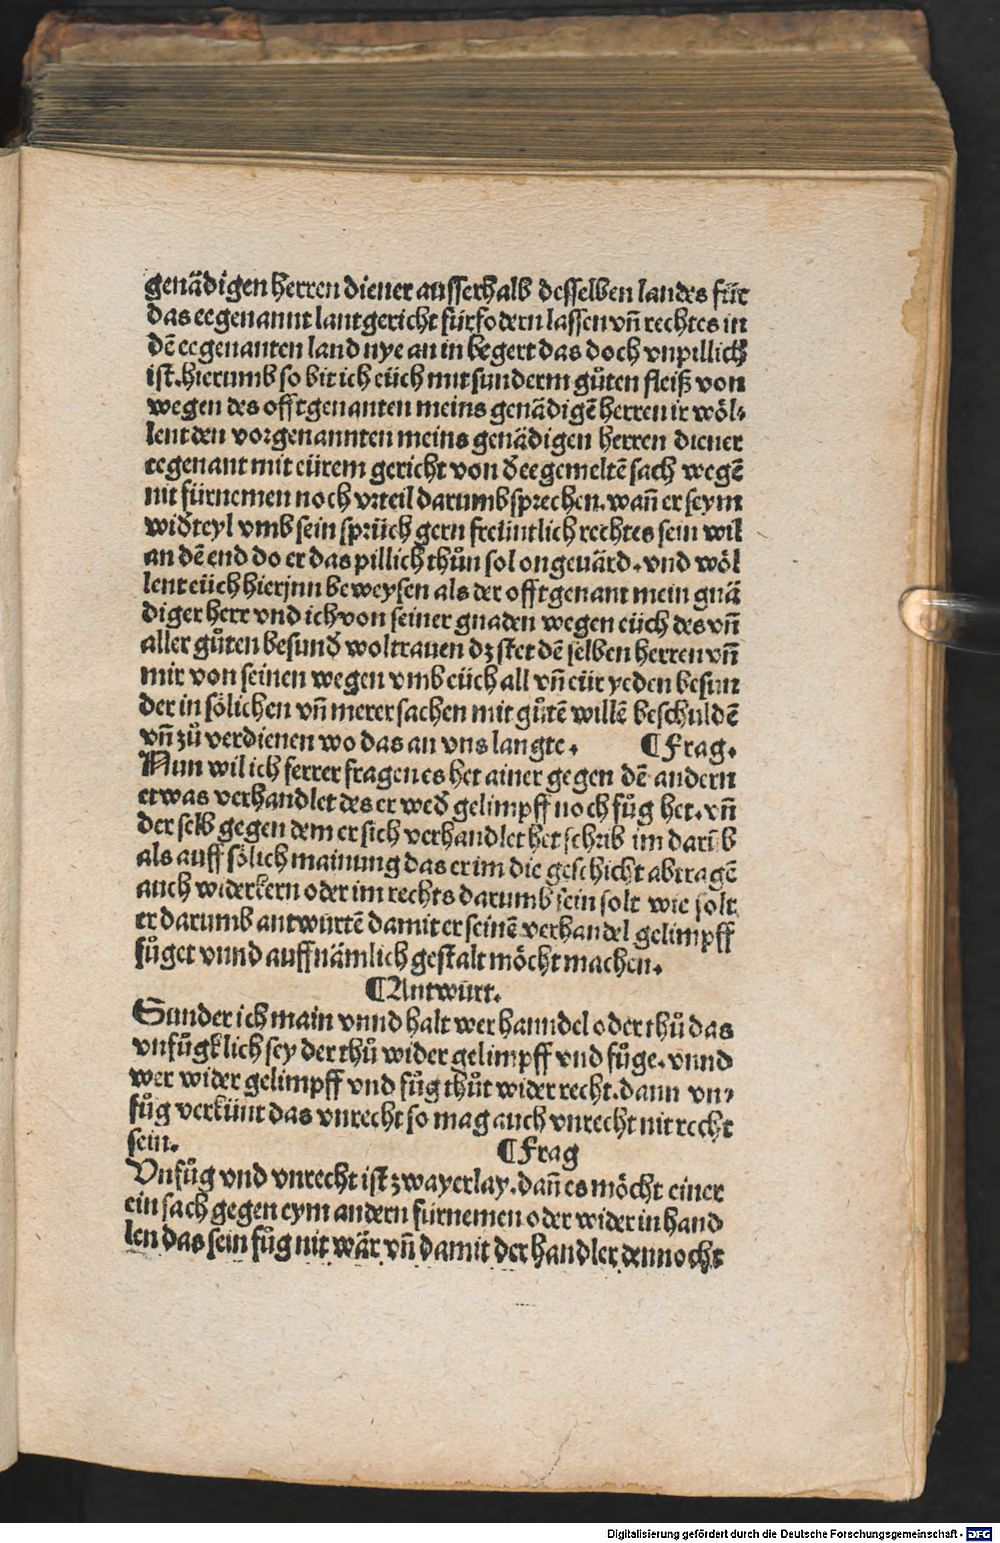 genädigen herren diener ausserhalb desselben landes für
das eegenannt lantgericht fürfodern lassen vñ rechtes in
dē eegenanten land nye an in begert das doch vnpillich
ist. hierumb so bit ich eüch mit sunderm gůten fleiß von
wegen des offtgenanten meins genädigē herren ir wöl⸗
lent den vorgenannten meins genädigen herren diener
eegenant mit eürem gericht von đ eegemeltē sach wegē
nit fürnemen noch vrteil darumb sprechen. wañ er seym
widđteyl vmb sein sprüch gern freüntlich rechtes sein wil
an dē end do er das pillich thůn sol ongeuärd. vnd wöl
lent eüch hierjnn beweysen als der offtgenant mein gnä
diger herr vnd ich von seiner gnaden wegen eüch des vñ
aller gůten besunđ wol trauen dz stet dē selben herren vñ
mir von seinen wegen vmb eüch all vñ eür yeden besun
der in sölichen vñ merer sachen mit gůtē willē beschuldē
vñ zů verdienen wo das an vns langte. ¶ Frag.
Nun wil ich ferrer fragen es het ainer gegen dē andern
etwas verhandlet des er weđ gelimpff noch fůg het. vñ
der selb gegen dem er sich verhandlet het schrib im darūb
als auff sölich mainung das er im die geschicht abtragē
auch widerkern oder im rechts darumb sein solt wie solt
er darumb antwürtē damit er seinē verhandel gelimpff
fůget vnnd auffnämlich gestalt möcht machen.
¶ Antwürt.
Sunder ich main vnnd halt wer hanndel oder thů das
vnfůgklich sey der thů wider gelimpff vnd fůge. vnnd
wer wider gelimpff vnd fůg thůt wider recht. dann vn⸗
fůg verkünt das vnrecht so mag auch vnrecht nit recht
sein. ¶ Frag
Vnfůg vnd vnrecht ist zwayerlay. dañ es möcht einer
ein sach gegen eym andern fürnemen oder wider in hand
len das sein fůg nit wär vñ damit der handler dennocht
Digitalisierung gefördert durch die Deutsche Forschungsgemeinschaft - DFG